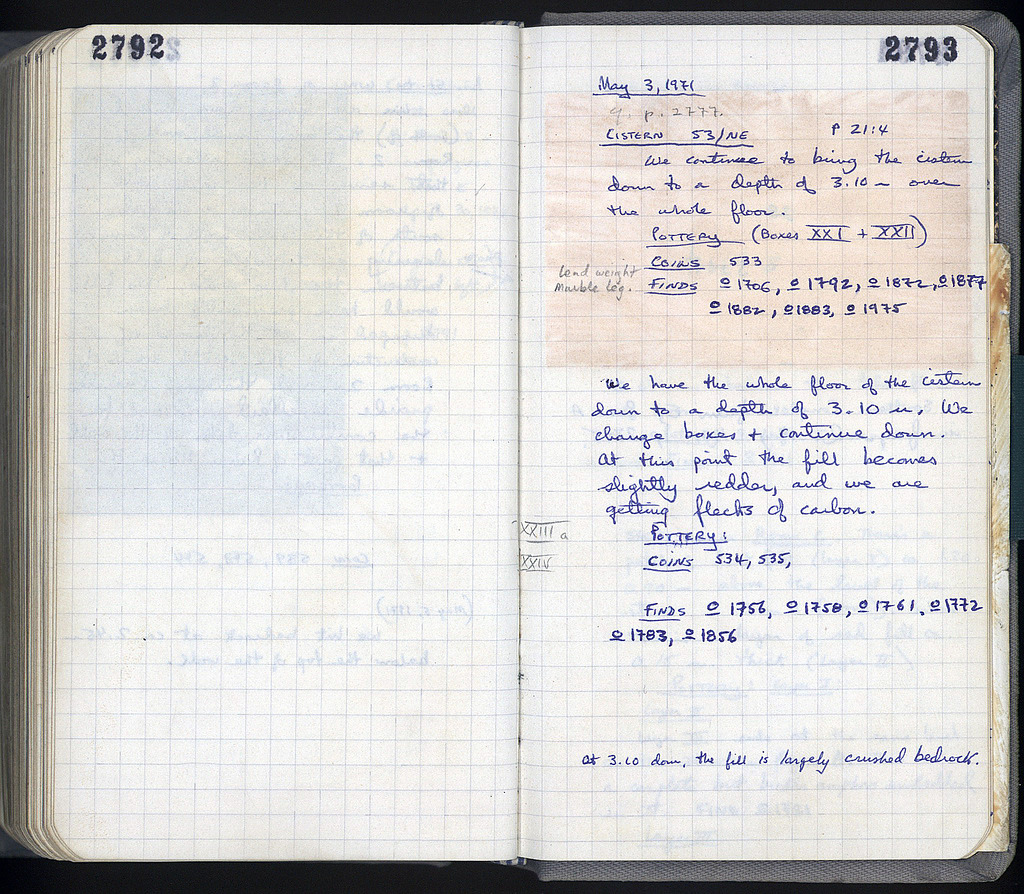 2792
2793
May 3, 1971
cf. p. 2777.
CISTERN 53/NE P 21:4
We continue to bring the cistern
down to a depth of 3.10 m over
the whole floor.
POTTERY (Boxes XXI + XXII)
COINS 533
Lead weight
Marble leg.
FINDS o 1706, o 1792, o 1872, o 1877
o 1882, o 1883, o 1975
We have the whole floor of the cistern
down to a depth of 3.10 m. We
change boxes + continue down.
At this point the fill becomes
slightly redder, and we are
getting flecks of carbon.
XXIII a
POTTERY:
XXIV
COINS 534, 535,
FINDS o 1756, o 1758, o 1761, o 1772
o 1783, o 1856
At 3.10 down, the fill is largely crushed bedrock.